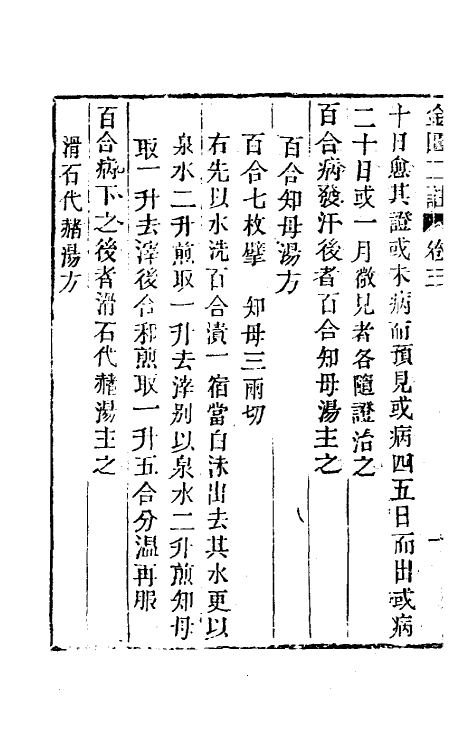 金匱二註　卷三　一
十日愈其證或未病而預見或病四五日而出或病
二十日或一月微見者各隨證治之
百合病發汗後者百合知母湯主之
百合知母湯方
百合七枚擘　知母三兩切
右先以水洗百合漬一宿當白沫出去其水更以
泉水二升煎取一升去滓别以泉水二升煎知母
取一升去滓後合和煎取一升五合分温再服
百合病下之後者滑石代赭湯主之
滑石代赭湯方